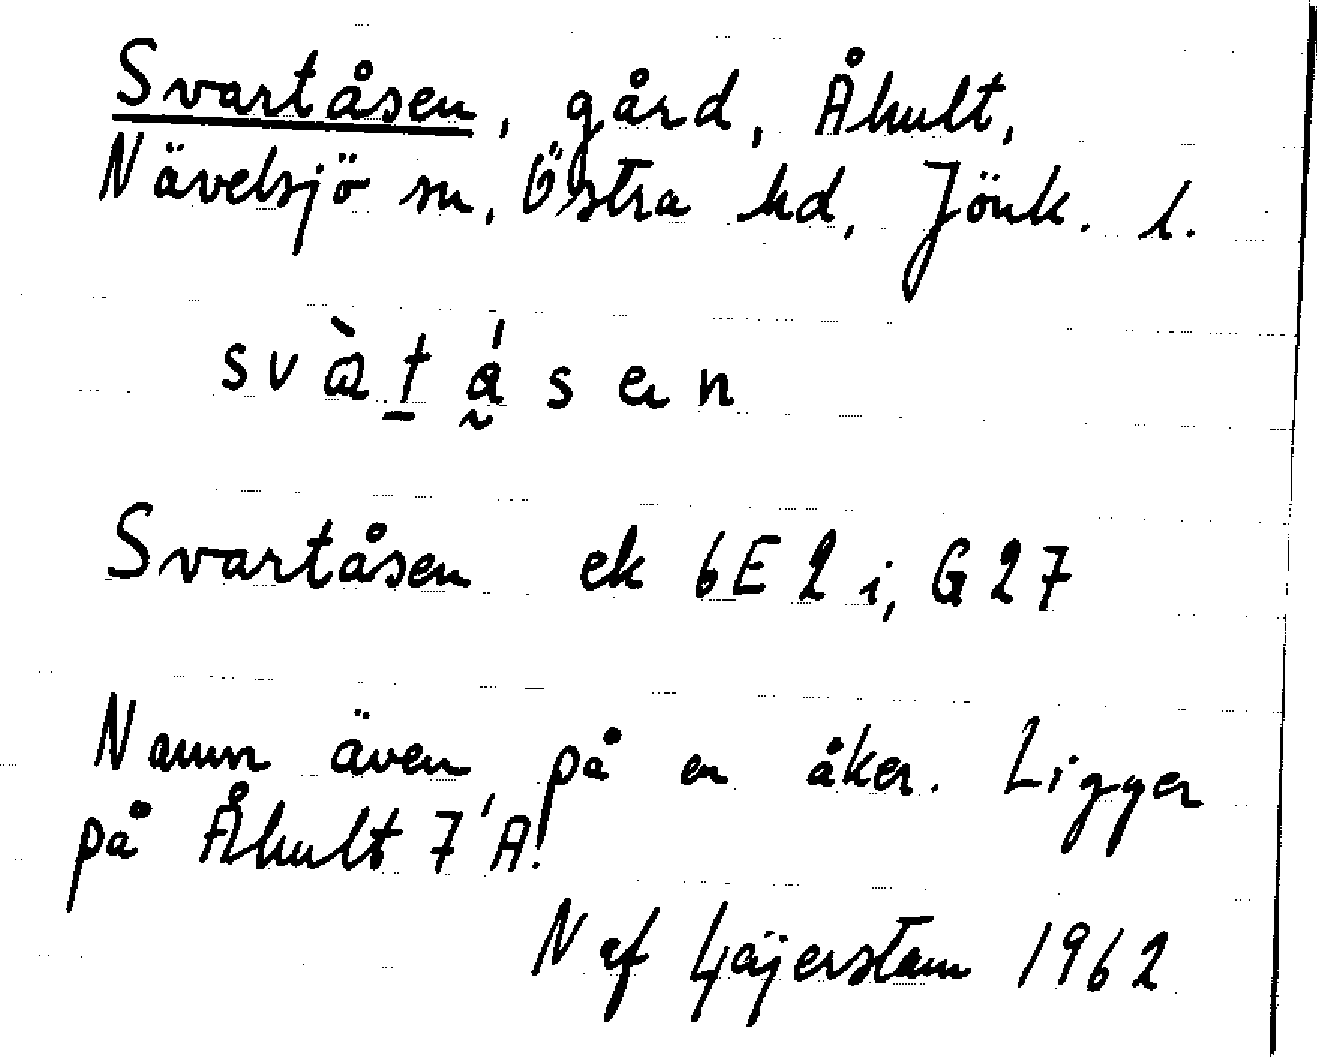 Svartåsen, gård, Åhult,
Nävelsjö sn, Östra hd, Jönk. l.
svàtásen
Svartåsen ek 6E2i, G27
Namn även på en åker. Ligger
på Åhult 7'A!
N af Geijerstam 1962